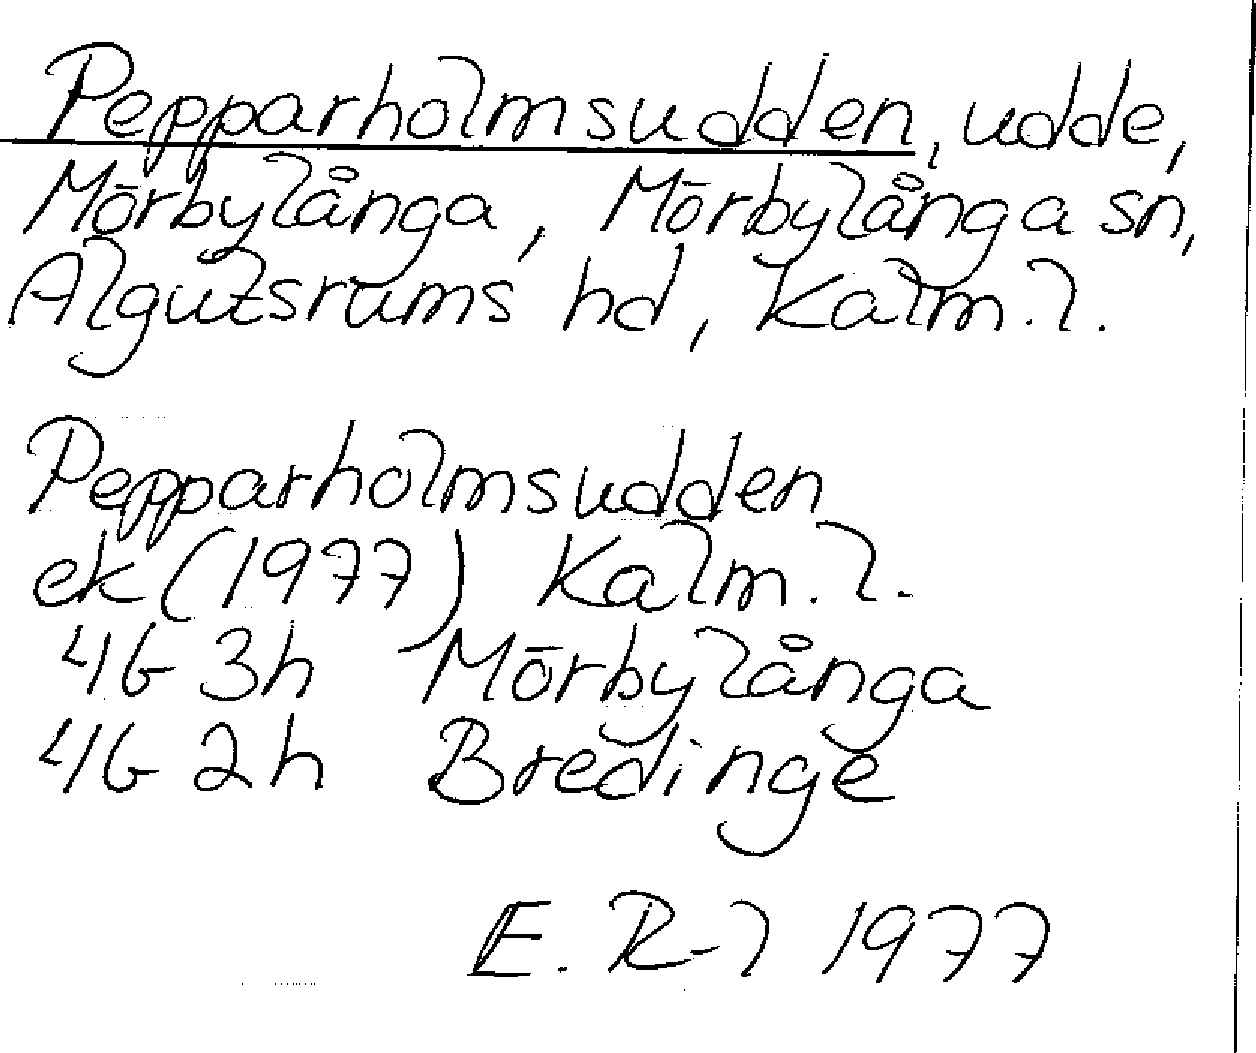 Pepparholmsudden, udde,
Mörbylånga, Mörbylånga sn,
Algutsrums hd, Kalm.l.
Pepparholmsudden
ek (1977) Kalm.l.
4G 3h Mörbylånga
4G 2h Bredinge
E. R-l 1977